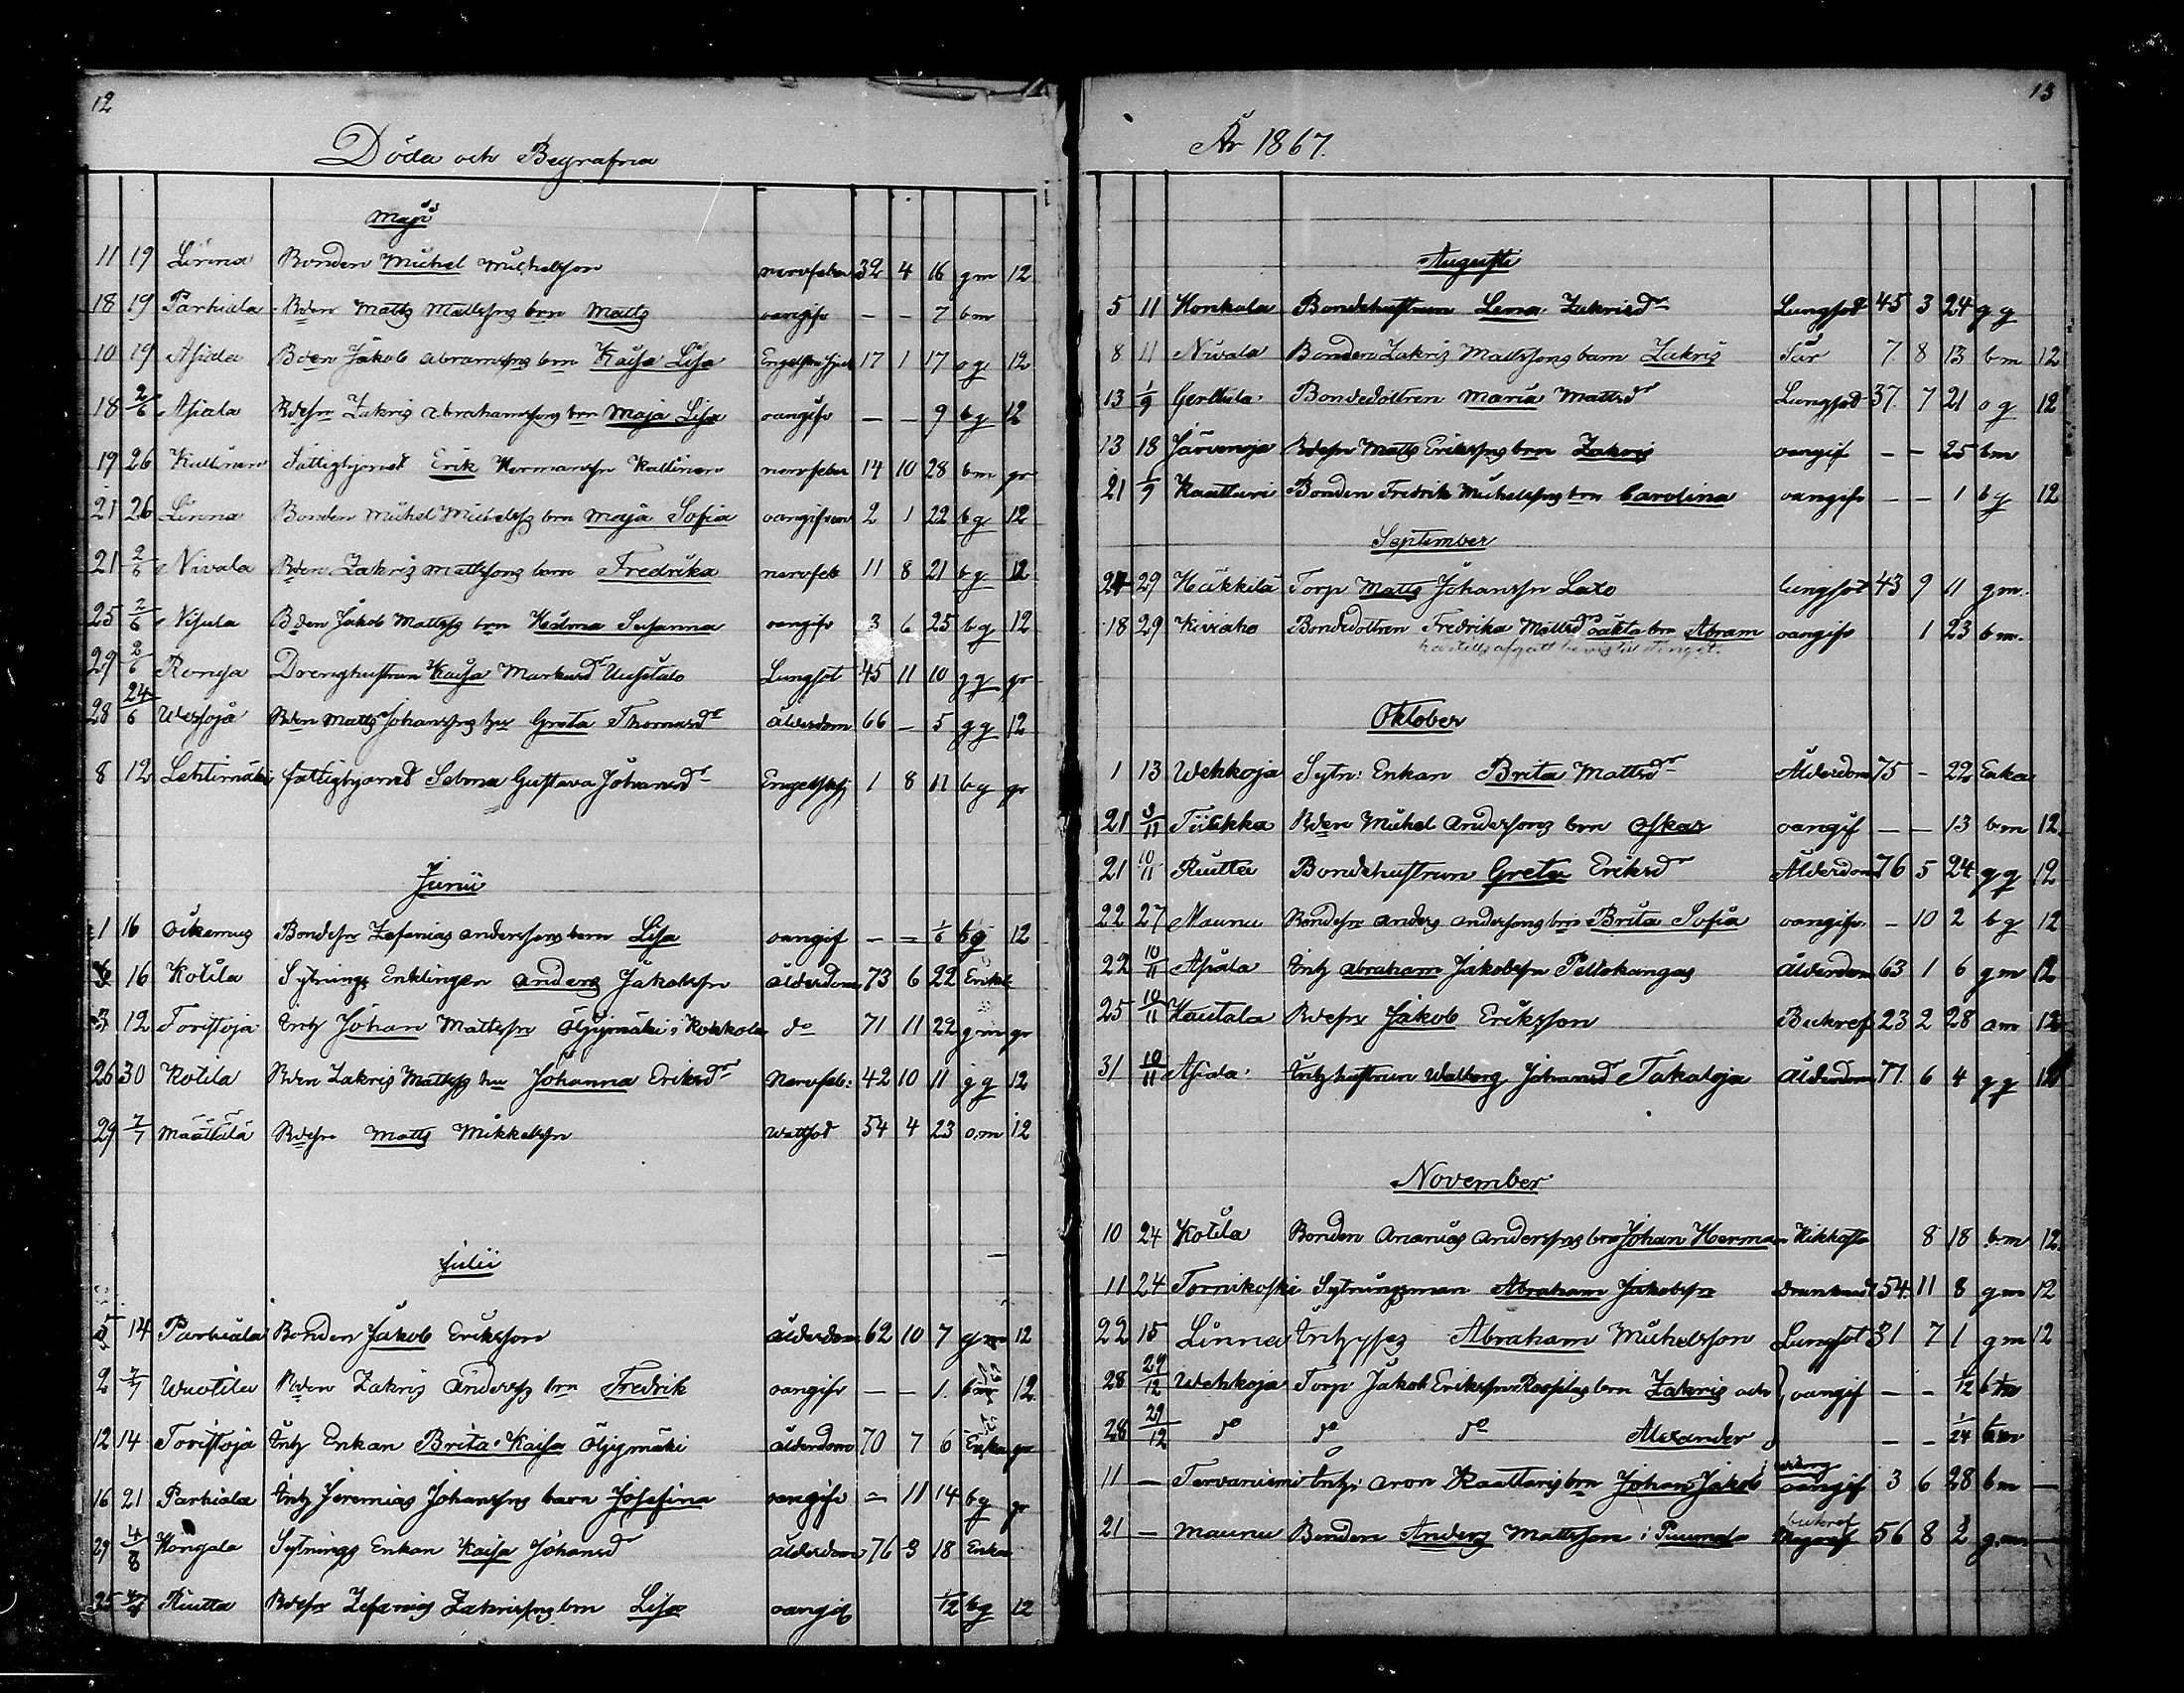 12
Döda och Begrafna
Maji
11 19 Linna Bonden Michel Michelsson nervfeber 32 4 16 gm 12
18 19 Parhiala Bden Matts Mattssons brn Matts oangifv — — 7 bm
10 19 Asiala Bden Jakob Abramssns brn Kaisa Lisa 17 1 17 og 12
18 2/6 Asiala Bdesn Zakris Abrahamssons brn Maja Lisa oangifv — — 9 bg 12
19 26 Kallinen Fattighjonet Erik Hermanssn Kallinen nervfeber 14 10 28 bm gr
21 26 Linna Bonden Michel Michelss brn Maja Sofia oangifven 2 1 22 bg 12
21 2/6 Nivala Bden Zakris Mattssons barn Fredrika nervfeb 11 8 21 bg 12
25 2/6 Visula Bden Jakob Mattss brn Hedma Susanna oangifv 3 6 25 bg 12
29 2/6 Ronga Drenghustrun Kaisa Markusdr Uusitalo Lungsot 45 11 10 gg gr
28 24/6 Wessoja Bden Matts Johanssns hu Greta Thomasdr Ålderdom 66 — 5 gg 12
8 12 Lehtimäki fattighjonet Selma Gustava Johansdr 1 8 11 bg gr
Junii
1 16 Oikemus Bondesn Zefanias Anderssons barn Lisa oangif — — 1/6 bg 12
16 Kotila Sytnings Enklingen Anders Jakobssn ålderdom 73 6 22 Enkl
3 12 Toristoja Inh Johan Mattssn Öljymäki i Kokkola do 71 11 22 gm gr
26 30 Kotila Bden Zakris Mattss hu Johanna Eriksdr Nervfeb: 42 10 11 gg 12
29 7/7 Määttälä Bdesn Matts Mikkelssn Wattsot 54 4 23 om 12
Julii
5 14 Parhiala Bonden Jakob Eriksson ålderdom 62 10 7 gm 12
2 7/7 Wuotila Bden Zakris Anderss brn Fredrik oangifv — — 1 bm 12
12 14 Toristoja Inh Enkan Brita Kaisa Öljymäki ålderdom 70 7 6 Enka gr
16 21 Parhiala Inh Jeremias Johanssns barn Josefina oangifv — 11 14 bg gr
29 4/8 Kongala Sytnings Enkan Kaisa Johansd ålderdom 76 3 18 Enka
25 Riutta Bdesn Zefanias Zakrissons brn Lisa oangif 1/12 bg 12
13
År 1867.
Augusti
5 11 Honkala Bondehustrun Lena Zakrisdr Lungsot 45 3 24 gg
8 11 Nivala Bonden Zakris Mattssons barn Zakris Sår 7 8 13 bm 12
13 1/9 Gerttula Bondedottren Maria Mattsdr Lungsot 37 7 21 og 12
13 18 Järvenoja Bdesn Matts Erikssns brn Zakris oangif — — 25 bm
21 1/9 Kaatturi Bonden Fredrik Michelssns brn Carolina oangifv — — 1 bg 12
September
29 Häkkilä Torp Matts Johanssn Laxo lungsot 43 9 11 gm.
18 29 Kiviaho Bondedottren Fredrika Mattsdr oäkta brn Abram oangifv 1 23 bm.
Oktober
1 13 Wehkoja Sytn: Enkan Brita Mattsdr Ålderdom 75 — 22 Enka
21 3/11 Tiikkka Bden Michel Anderssons brn Oskar oangif — — 13 bm 12
21 10/11 Riutta Bondehustrun Greta Eriksdr Ålderdom 76 5 24 gg 12
22 27 Maunu Bondesn Anders Anderssons brn Brita Sofia oangifv. — 10 2 bg 12
22 10/11 Asiala Inh Abraham Jakobssn Peltokangas ålderdom 63 1 6 gm 12
25 10/11 Hautala Bdesn Jakob Eriksson Bukref 23 2 28 om 12
31 10/11 Asiala Inh hustrun Walborg Johansd Takaloja Ålderdom 77 6 4 gg 12
November
10 24 Kotila Bonden Ananias Anderssns brn Johan Herman Kikhosta 8 18 bm 12
11 24 Tornikoski Sytningsman Abraham Jakobssn drunknad 54 11 8 gm 12
22 15 Linna Abraham Michelsson Lungsot 31 7 1 gm 12
28 29/12 Wehkoja Torp Jakob Erikssns brn Zakris och oangif — — 1/12 bm
28 29/12 do do do Alexander — — 1/24 bm
11 — Tervaniemi Inh: Aron Kaattaris brn Johan Jakob oangif 3 6 28 bm —
21 — Maunu Bonden Anders Mattsson i Puumala bukref 56 8 2 gm —